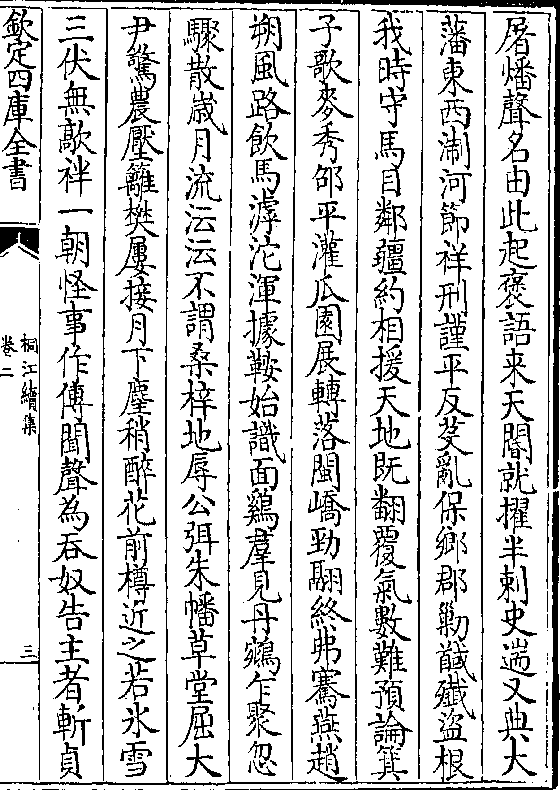 屠燔聲名由此起褒語來天閽就擢半刺史遄又典大
藩東西淛河節祥刑謹平反芟亂保鄉郡勦馘殲盜根
我時守馬目鄰疆約相援天地既翻覆氣數難預論箕
子歌麥秀邵平灌瓜園展轉落閩嶠勁翮終弗騫燕趙
朔風路飲馬滹沱渾據鞍始識面鷄羣見丹鵷乍聚忽
驟散歲月流沄沄不謂桑梓地辱公弭朱幡草堂屈大
尹驚農壓籬樊屢接月下麈稍酣花前樽近之若氷雪
三伏無歊袢一朝怪事作傳聞聲為吞奴告主者斬貞
欽定四庫全書
桐江續集
卷二
三